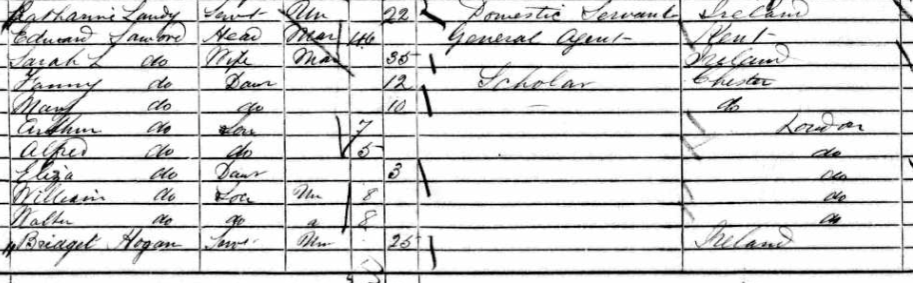 Catharine Landy Servt Un 22 Domestic Servant Ireland
Edward Head Mar 46 General Agent Kent
Sarah L do Wife Mar 35 Ireland
Fanny do Daur 12 Scholar Chester
Mary do do 10 — do
Arthur do Son 7 London
Alfred do do 5 do
Eliza do Daur 3 do
William do Son Un 8 do
Walter do do 8 do
Bridget Hogan Servt Un 25 Ireland